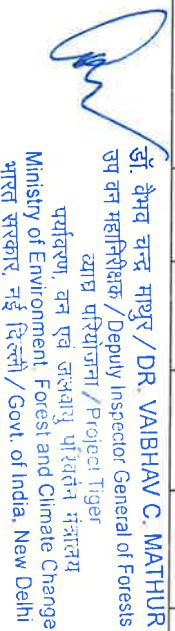 डॉ. वैभव चन्द्र माथुर / DR. VAIBHAV C. MATHUR
उप वन महानिरीक्षक / Deputy Inspector General of Forests
व्याघ्र परियोजना / Project Tiger
पर्यावरण, वन एवं जलवायु परिवर्तन मंत्रालय
Ministry of Environment, Forest and Climate Change
भारत सरकार, नई दिल्ली / Govt. of India, New Delhi